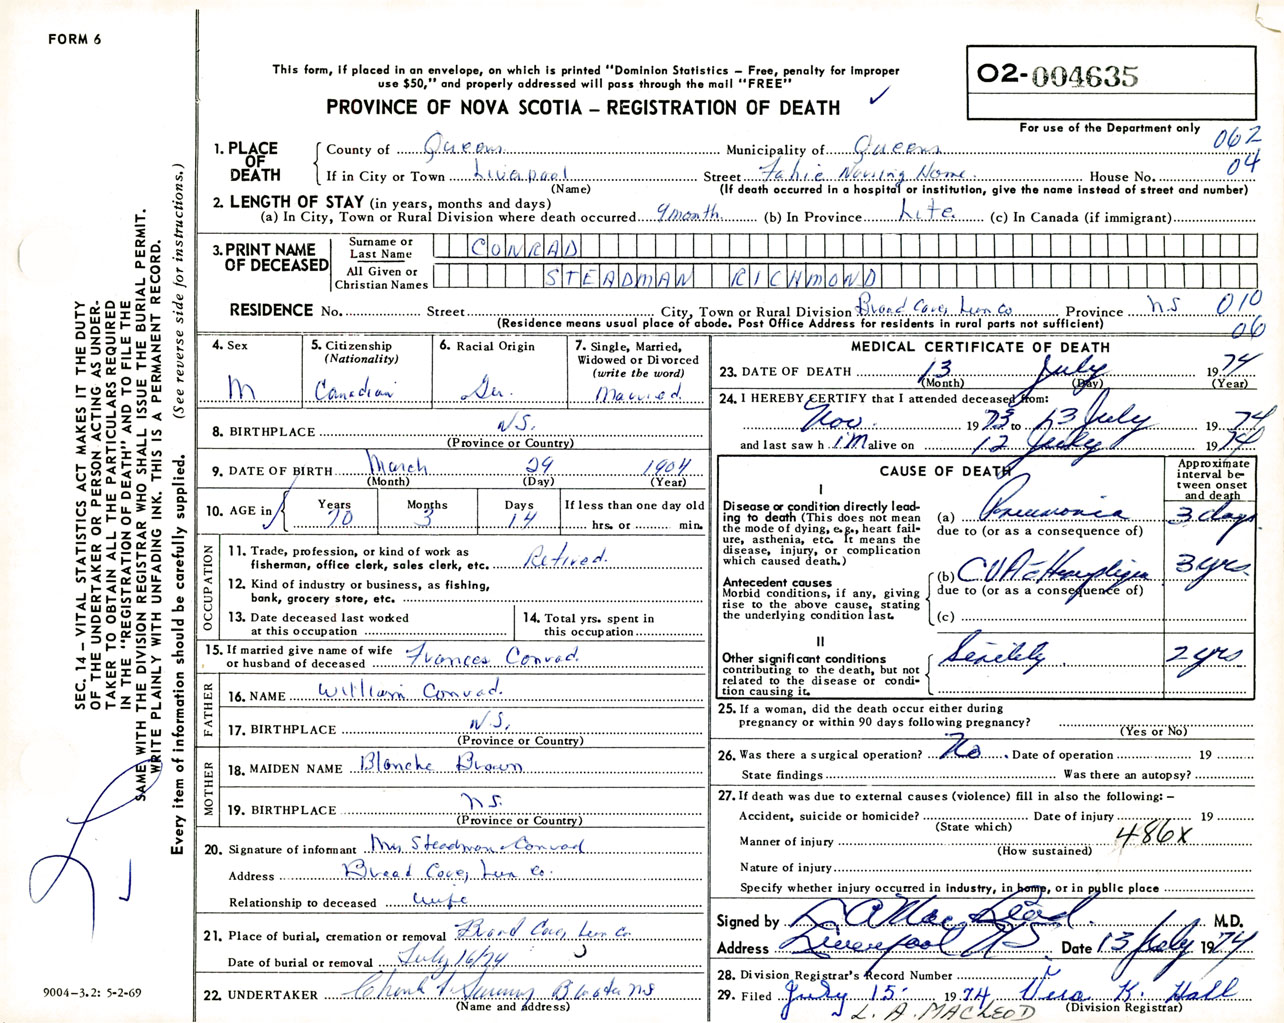 FORM 6
This form, if placed in an envelope, on which is printed "Dominion Statistics – Free, penalty for improper
use $50," and properly addressed will pass through the mail "FREE"
PROVINCE OF NOVA SCOTIA – REGISTRATION OF DEATH ✓
02-004635
For use of the Department only
062
04
1. PLACE OF DEATH
County of Queens Municipality of Queens
If in City or Town Liverpool Street Fahie Nursing Home House No.
(Name) (If death occurred in a hospital or institution, give the name instead of street and number)
2. LENGTH OF STAY (in years, months and days)
(a) In City, Town or Rural Division where death occurred 9 month (b) In Province Life (c) In Canada (if immigrant)
3. PRINT NAME OF DECEASED
Surname or Last Name CONRAD
All Given or Christian Names STEADMAN RICHMOND
RESIDENCE No. Street City, Town or Rural Division Broad Cove, Lun Co Province NS 010
(Residence means usual place of abode. Post Office Address for residents in rural parts not sufficient) 06
4. Sex M
5. Citizenship (Nationality) Canadian
6. Racial Origin Ger.
7. Single, Married, Widowed or Divorced (write the word) Married
8. BIRTHPLACE N.S.
(Province or Country)
9. DATE OF BIRTH March 29 1904
(Month) (Day) (Year)
10. AGE in Years 70 Months 3 Days 14 If less than one day old
hrs. or min.
OCCUPATION
11. Trade, profession, or kind of work as
fisherman, office clerk, sales clerk, etc. Retired.
12. Kind of industry or business, as fishing,
bank, grocery store, etc.
13. Date deceased last worked
at this occupation
14. Total yrs. spent in
this occupation
15. If married give name of wife
or husband of deceased Frances Conrad.
FATHER
16. NAME William Conrad.
17. BIRTHPLACE N.S.
(Province or Country)
MOTHER
18. MAIDEN NAME Blanche Brown
19. BIRTHPLACE NS.
(Province or Country)
20. Signature of informant Mrs Steadman Conrad
Address Broad Cove, Lun Co.
Relationship to deceased wife
21. Place of burial, cremation or removal Broad Cove, Lun Co
Date of burial or removal July 16/74
22. UNDERTAKER
(Name and Address)
MEDICAL CERTIFICATE OF DEATH
23. DATE OF DEATH 13 July 1974
(Month) (Day) (Year)
24. I HEREBY CERTIFY that I attended deceased from:
Nov 1973 to 13 July 1974
and last saw him alive on 12 July 1974
CAUSE OF DEATH
Approximate interval between onset and death
I
Disease or condition directly lead-
ing to death (This does not mean
the mode of dying, e.g., heart fail-
ure, asthenia, etc. It means the
disease, injury, or complication
which caused death.)
(a) Pneumonia 3 days
due to (or as a consequence of)
Antecedent causes
Morbid conditions, if any, giving
rise to the above cause, stating
the underlying condition last.
(b) CVA c Hemiplegia 3 yrs.
due to (or as a consequence of)
(c)
II
Other significant conditions
contributing to the death, but not
related to the disease or condi-
tion causing it.
Senility 2 yrs
25. If a woman, did the death occur either during
pregnancy or within 90 days following pregnancy?
(Yes or No)
26. Was there a surgical operation? No. Date of operation 19
State findings Was there an autopsy?
27. If death was due to external causes (violence) fill in also the following: –
Accident, suicide or homicide? Date of injury 19
(State which)
Manner of injury 486x
(How sustained)
Nature of injury
Specify whether injury occurred in industry, in home, or in public place
Signed by L A MacLeod M.D.
Address Liverpool NS Date 13 July 1974
28. Division Registrar's Record Number
29. Filed July 15 1974 Vera K. Hall
(Division Registrar)
L. A. MACLEOD
SEC. 14 – VITAL STATISTICS ACT MAKES IT THE DUTY
OF THE UNDERTAKER OR PERSON ACTING AS UNDER-
TAKER TO OBTAIN ALL THE PARTICULARS REQUIRED
IN THE "REGISTRATION OF DEATH" AND TO FILE THE
SAME WITH THE DIVISION REGISTRAR WHO SHALL ISSUE THE BURIAL PERMIT.
WRITE PLAINLY WITH UNFADING INK. THIS IS A PERMANENT RECORD.
Every item of information should be carefully supplied. (See reverse side for instructions.)
9004-3.2: 5-2-69